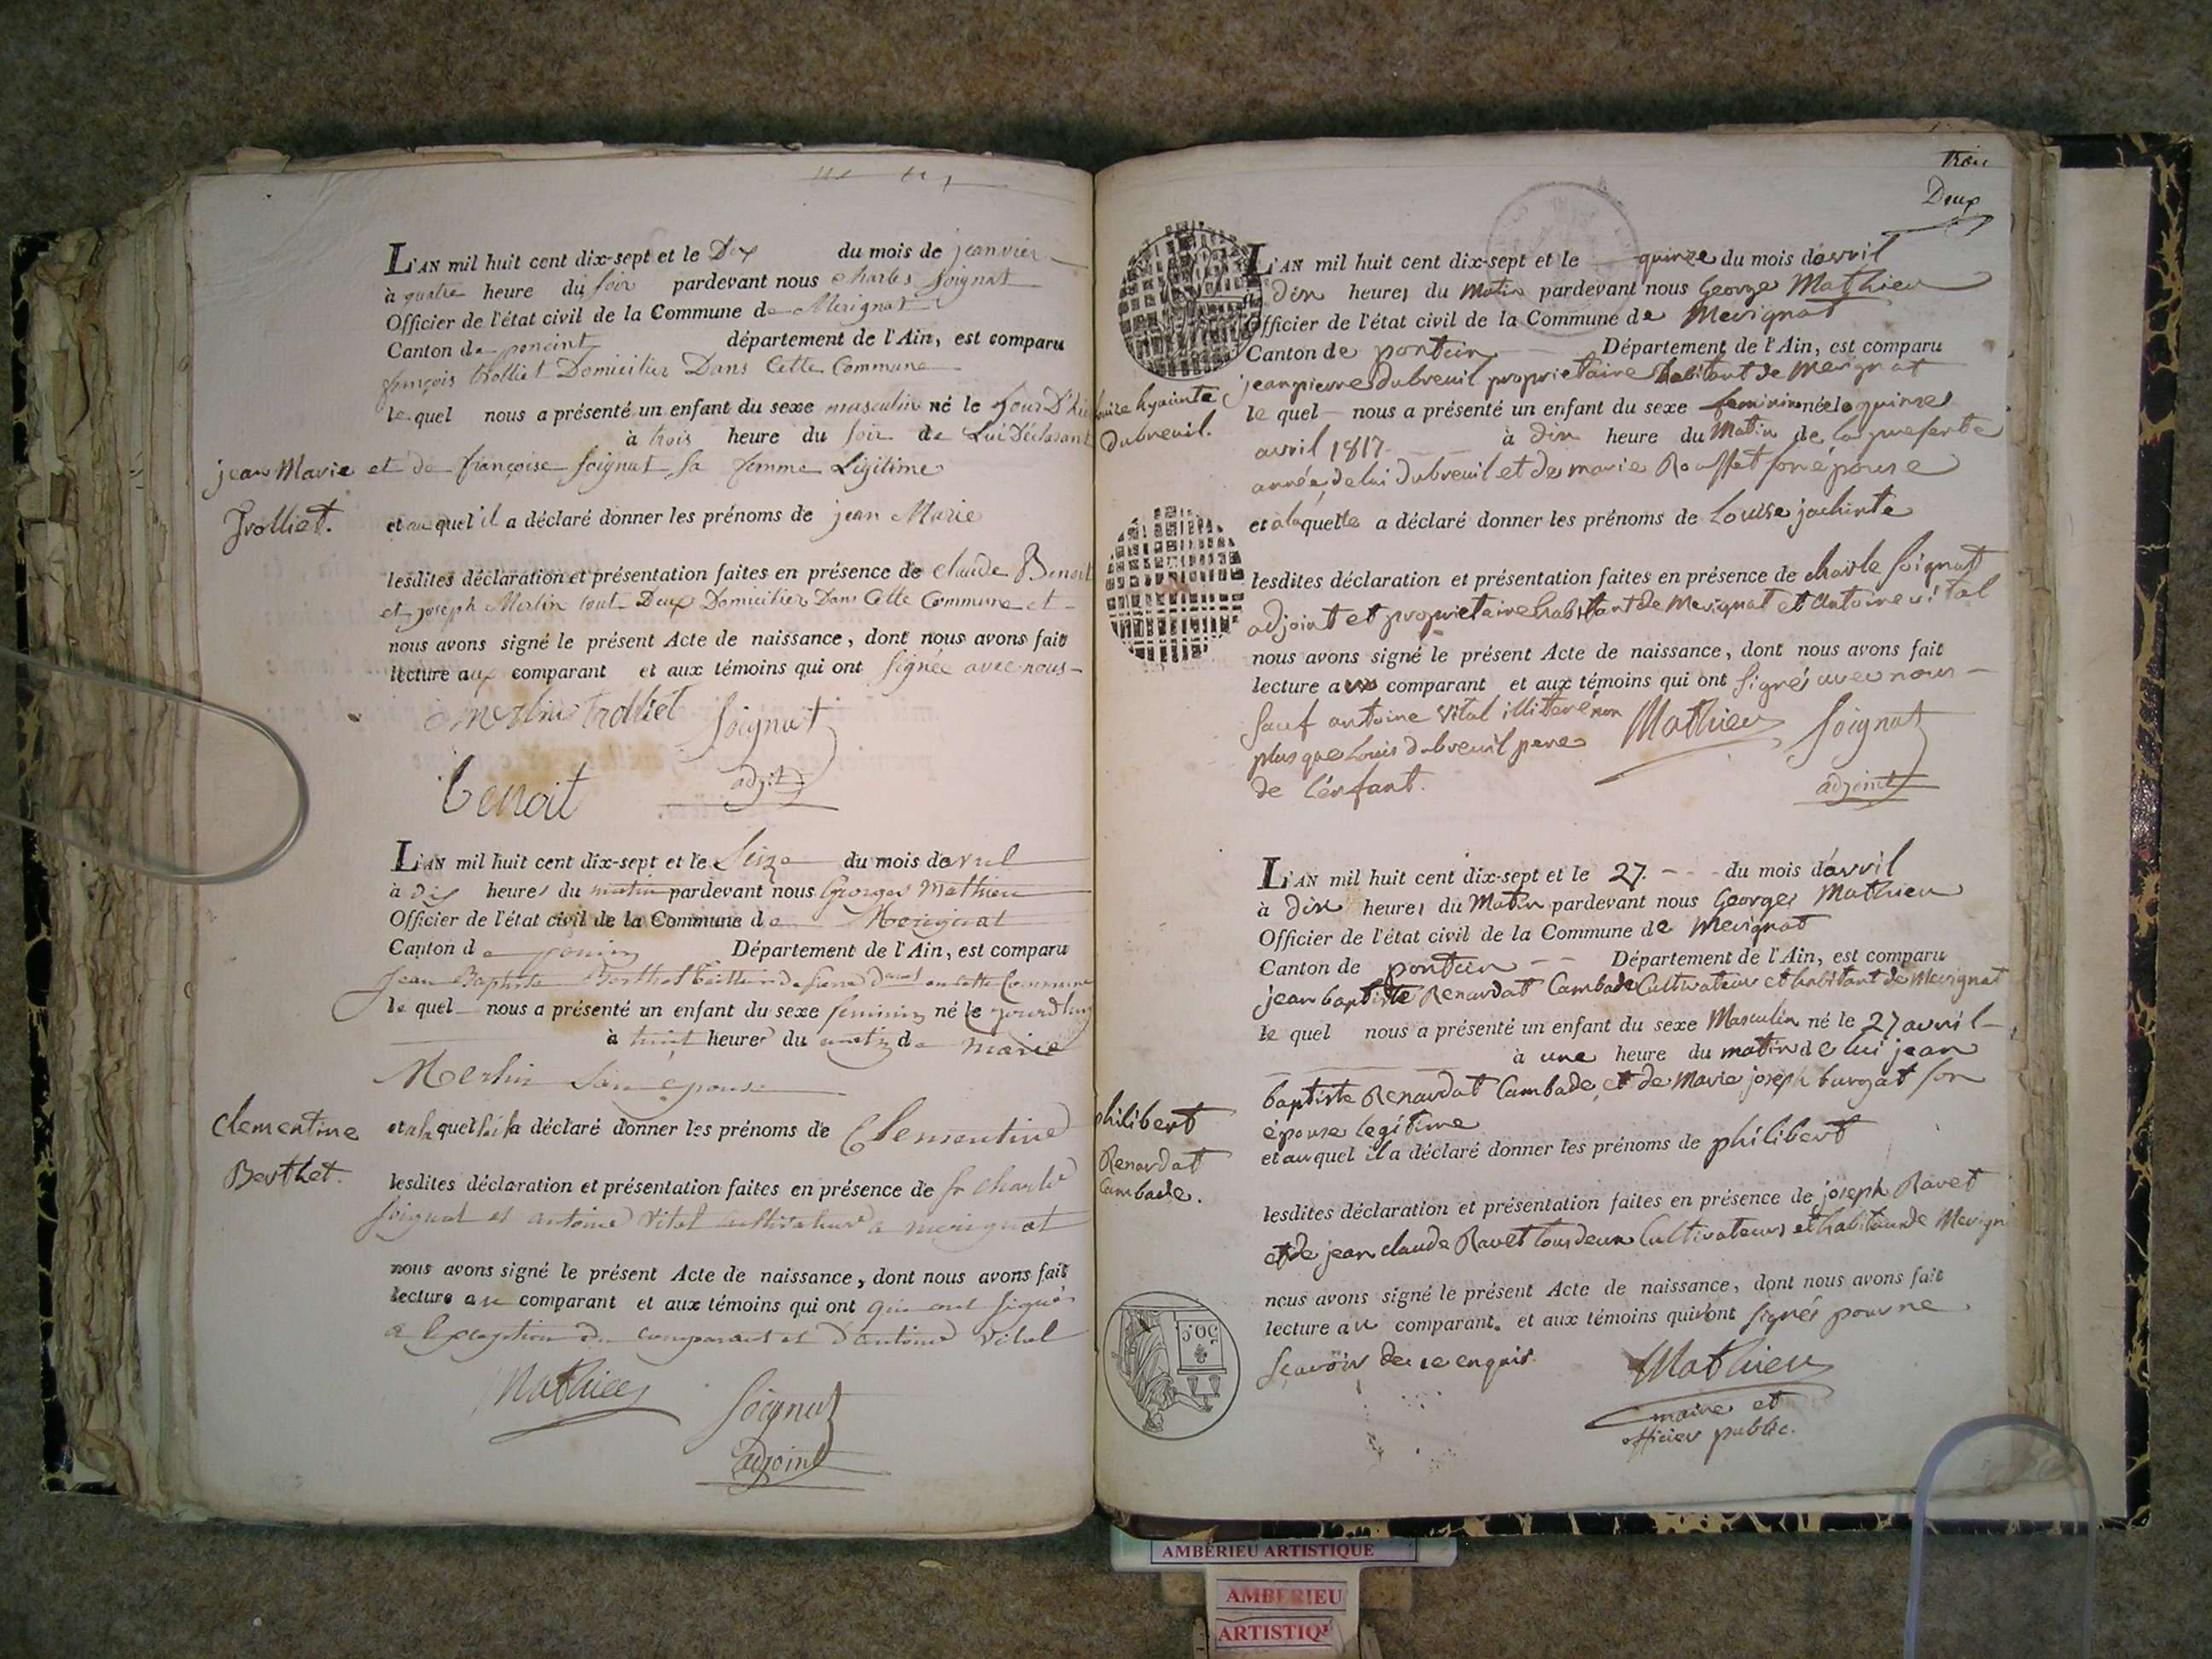 L'AN mil huit cent dix-sept et le Dix du mois de jeanvier
à quatre heure du soir pardevant nous charles Soignat
Officier de l'état civil de la Commune de Merignat
Canton de poncint département de l'Ain, est comparu
françois trolliet Domicilier Dans Cette Commune
le quel nous a présenté un enfant du sexe masculin né le jour D'hui
à trois heure du soir de Lui Déclarant
jean Marie
Trolliet.
et de françoise Soignat sa femme Légitime
et au quel il a déclaré donner les prénoms de jean Marie
lesdites déclaration et présentation faites en présence de claude Benoit
et joseph Merlin tout Deux Domicilier Dans Cette Commune et
nous avons signé le présent Acte de naissance, dont nous avons fait
lecture aux comparant et aux témoins qui ont signée avec nous
merlin trolliet Soignat
Benoit adjt
L'AN mil huit cent dix-sept et le Seize du mois davril
à dix heures du matin pardevant nous Georges Mathieu
Officier de l'état civil de la Commune de Merignat
Canton de poncin Département de l'Ain, est comparu
Jean Baptiste Berthet en cette Commune
le quel nous a présenté un enfant du sexe feminin né le jourdhuy
à huit heures du matin de marie
Merlin son epouse
Clementine
Berthet.
et a la quelle il a déclaré donner les prénoms de Clementine
lesdites déclaration et présentation faites en présence de sr charle
Soignat et antoine Vital cultivateur a merignat
nous avons signé le présent Acte de naissance, dont nous avons fait
lecture au comparant et aux témoins qui ont qui ont signé
a lexception du comparant et d'antoine Vital
Mathieu Soignat
adjoint
trois
Deux
L'AN mil huit cent dix-sept et le quinze du mois d'avril
à dix heures du matin pardevant nous George Mathieu
Officier de l'état civil de la Commune de Merignat
Canton de pontcin Département de l'Ain, est comparu
jean pierre dubreuil proprietaire habitant de merignat
louise hyacinte
dubreuil.
le quel nous a présenté un enfant du sexe feminin née le quinze
avril 1817 à dix heure du Matin de la presente
année, de lui dubreuil et de marie Rousset son épouse
et a laquelle a déclaré donner les prénoms de Louise jachinte
lesdites déclaration et présentation faites en présence de charle soignat
adjoint et proprietaire habitant de merignat et antoine vital
nous avons signé le présent Acte de naissance, dont nous avons fait
lecture aux comparant et aux témoins qui ont signés avec nous
sauf antoine Vital illiteré non Mathieu Soignat
plus que Louis dubreuil pere
de l'enfant. adjoint
L'AN mil huit cent dix-sept et le 27 du mois d'avril
à dix heures du Matin pardevant nous Georges Mathieu
Officier de l'état civil de la Commune de Merignat
Canton de pontcin Département de l'Ain, est comparu
jean baptiste Renardat Cambade Cultivateur et habitant de Merignat
le quel nous a présenté un enfant du sexe Masculin né le 27 avril
à une heure du matin de lui jean
baptiste Renardat Cambade, et de Marie joseph burgat son
épouse legitime
philibert
Renardat
Cambade.
et au quel il a déclaré donner les prénoms de philibert
lesdites déclaration et présentation faites en présence de joseph Ravet
et de jean claude Ravet tous deux Cultivateurs et habitant de Merign
nous avons signé le présent Acte de naissance, dont nous avons fait
lecture au comparant. et aux témoins qui n'ont signés pour ne
sçavoir de ce enquis. Mathieu
maire et
officier public.
50C
AMBERIEU ARTISTIQUE
AMBERIEU
ARTISTIQ